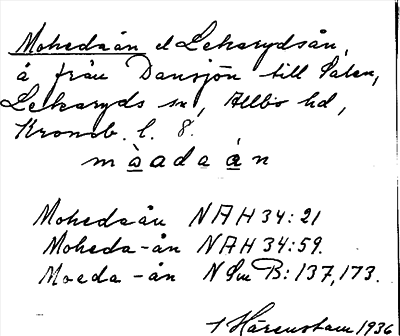 Mohedaån el Lekarydsån,
å från Dansjön till Salen,
Lekaryds sn, Allbo hd,
Kronob. l. 8.
mòadaán
Mohedaån NAH 34:21
Moheda-ån NAH 34:59.
Moeda-ån NSm B: 137, 173.
Hårenstam 1936